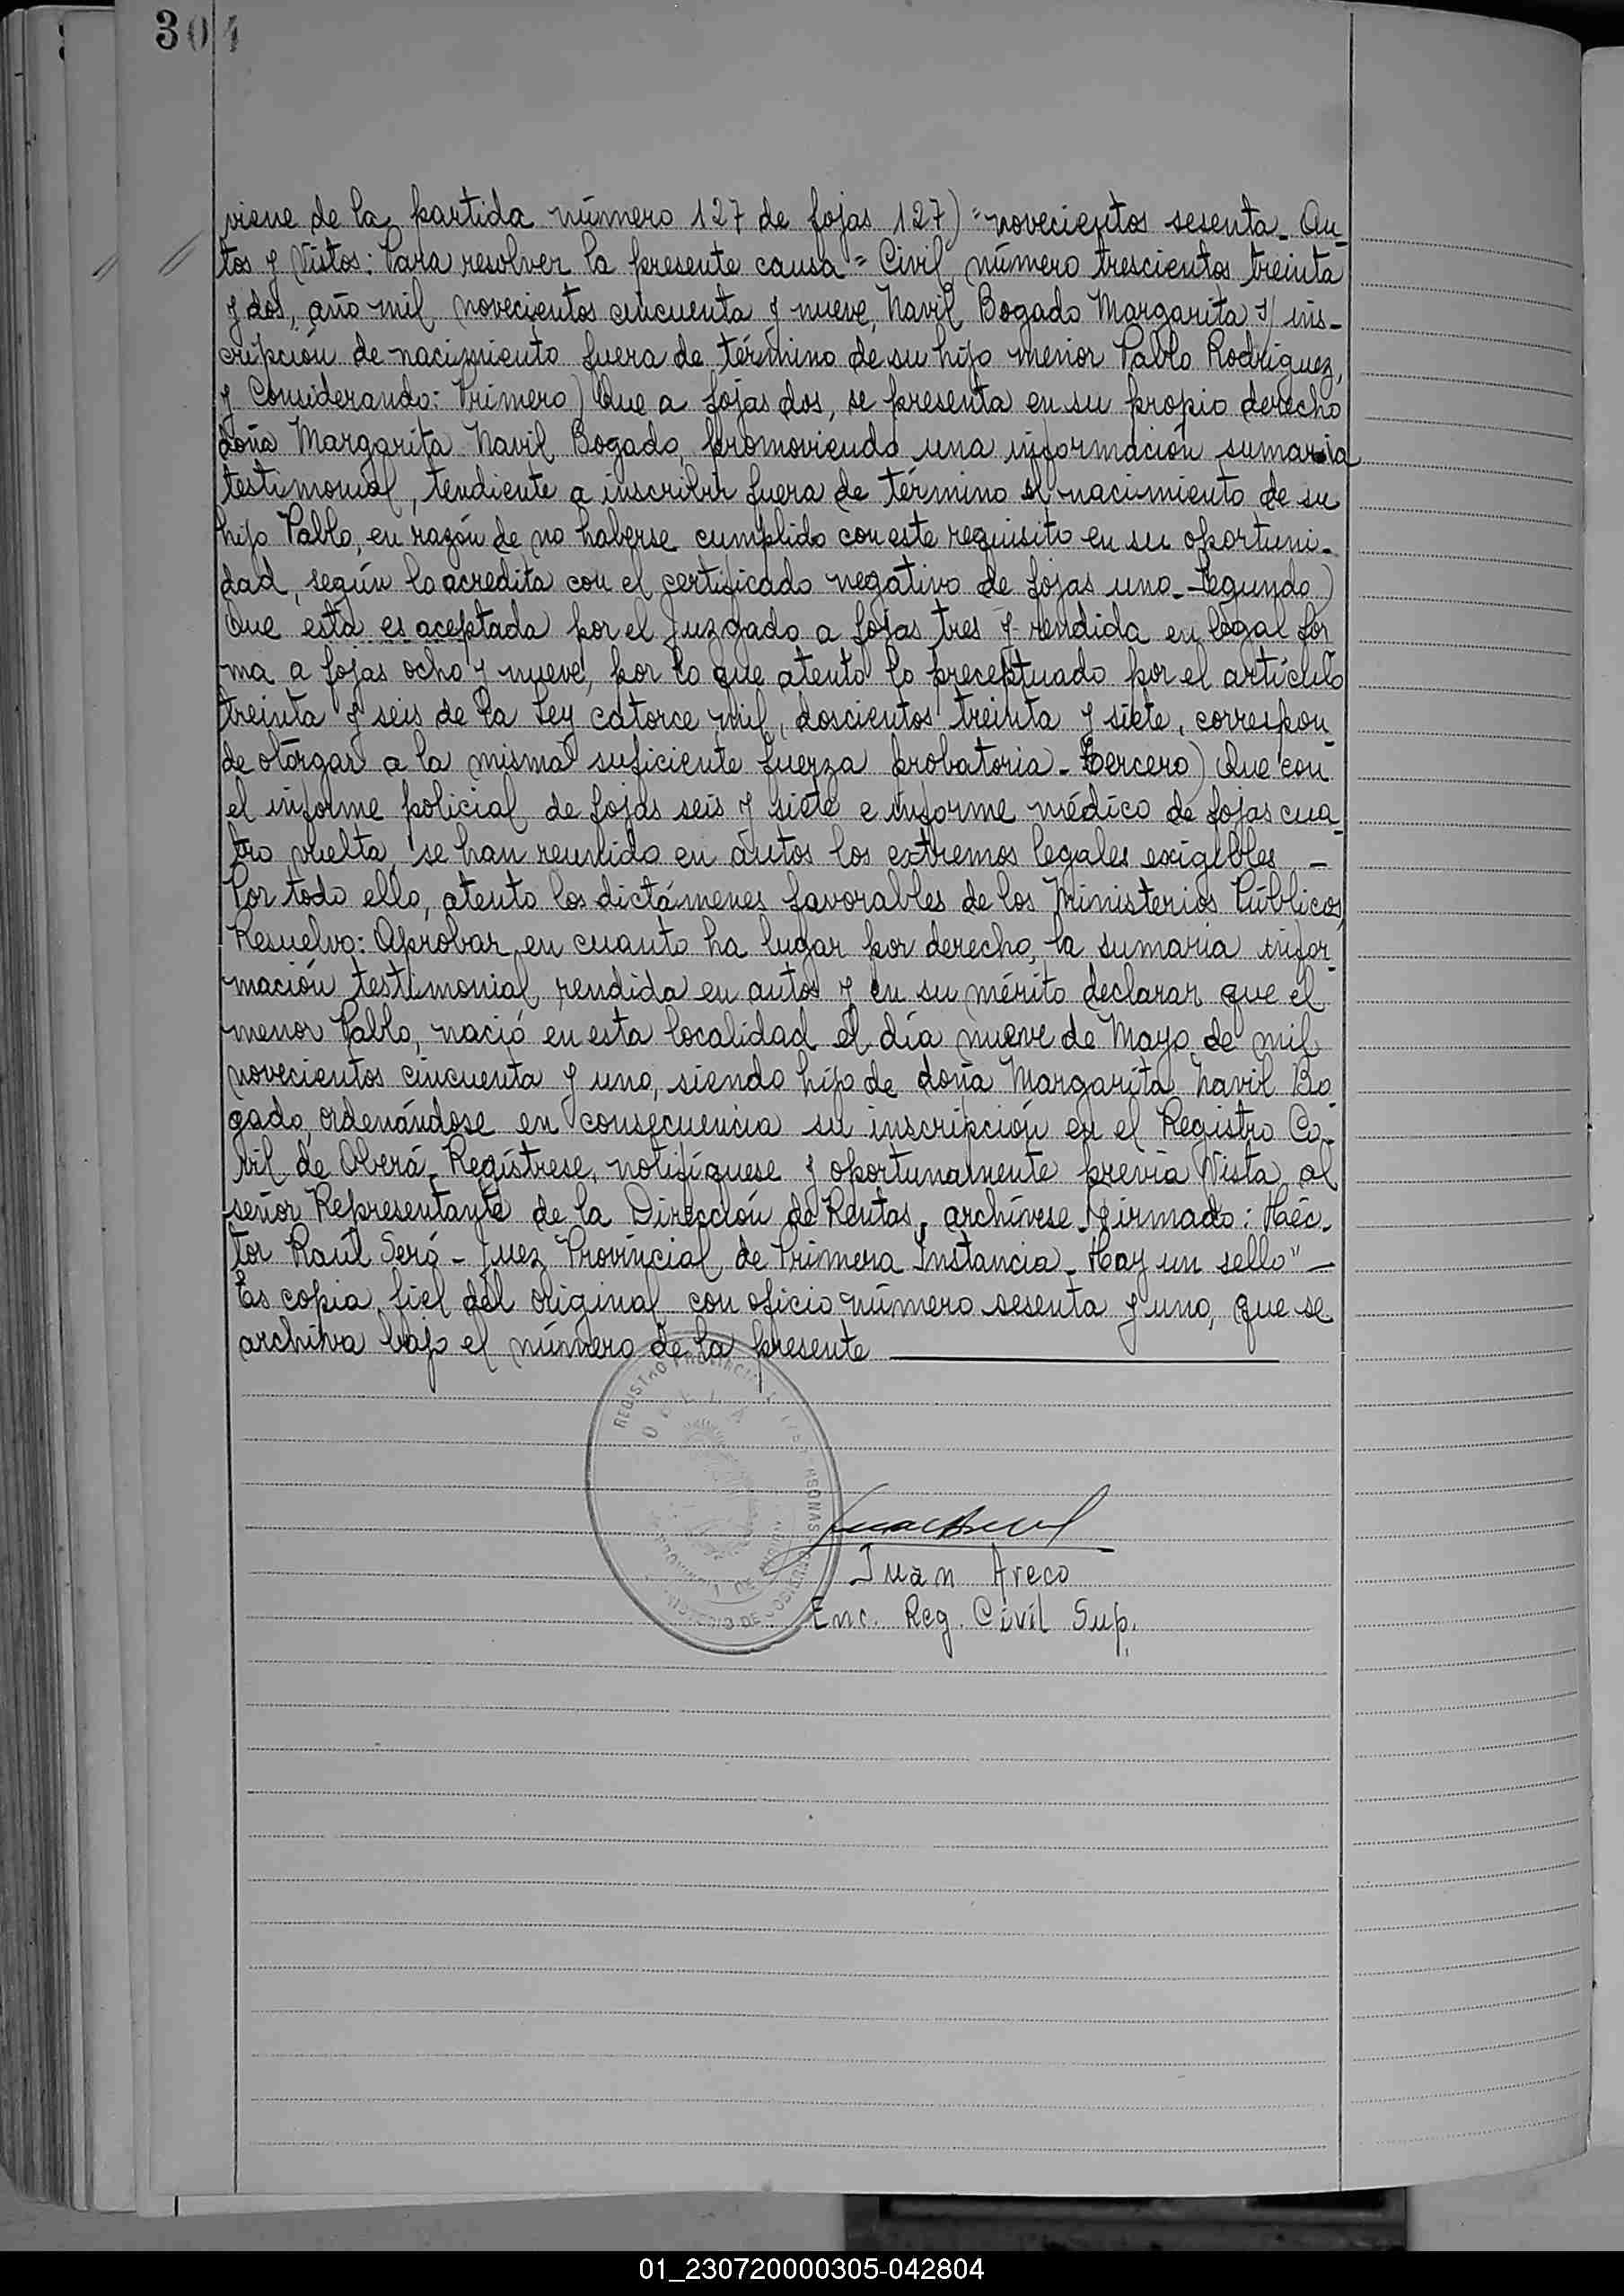 304
viene de la partida número 127 de fojas 127) "novecientos sesenta - Au-
tos y Vistos: Para resolver la presente causa = Civil número trescientos treinta
y dos, año mil novecientos cincuenta y nueve, Navil Bogado Margarita s/ ins-
cripción de nacimiento fuera de término de su hijo menor Pablo Rodriguez,
y Considerando: Primero) Que a fojas dos, se presenta en su propio derecho
doña Margarita Navil Bogado, promoviendo una información sumaria
testimonial, tendiente a inscribir fuera de término el nacimiento de su
hijo Pablo, en razón de no haberse cumplido con este requisito en su oportuni-
dad, según lo acredita con el certificado negativo de fojas uno - Segundo)
Que esta es aceptada por el Juzgado a fojas tres y rendida en legal for
ma a fojas ocho y nueve, por lo que atento lo preceptuado por el artículo
treinta y seis de la Ley catorce mil, doscientos treinta y siete, correspon-
de otorgar a la misma suficiente fuerza probatoria - Tercero) Que con
el informe policial de fojas seis y siete e informe médico de fojas cua-
tro vuelta, se han reunido en autos los extremos legales exigibles -
Por todo ello, atento los dictámenes favorables de los Ministerios Públicos,
Resuelvo: Aprobar en cuanto ha lugar por derecho, la sumaria infor-
mación testimonial rendida en autos y en su mérito declarar que el
menor Pablo, nació en esta localidad el día nueve de Mayo de mil
novecientos cincuenta y uno, siendo hijo de doña Margarita Navil Bo-
gado, ordenándose en consecuencia su inscripción en el Registro Ci-
vil de Oberá - Regístrese, notifíquese y oportunamente previa Vista al
señor Representante de la Dirección de Rentas, archívese - Firmado: Héc-
tor Raúl Seró - Juez Provincial de Primera Instancia - Hay un sello" -
Es copia fiel del original con oficio número sesenta y uno, que se
archiva bajo el número de la presente
REGISTRO PROVINCIAL
Juan Areco
Enc. Reg. Civil Sup.
01_230720000305-042804